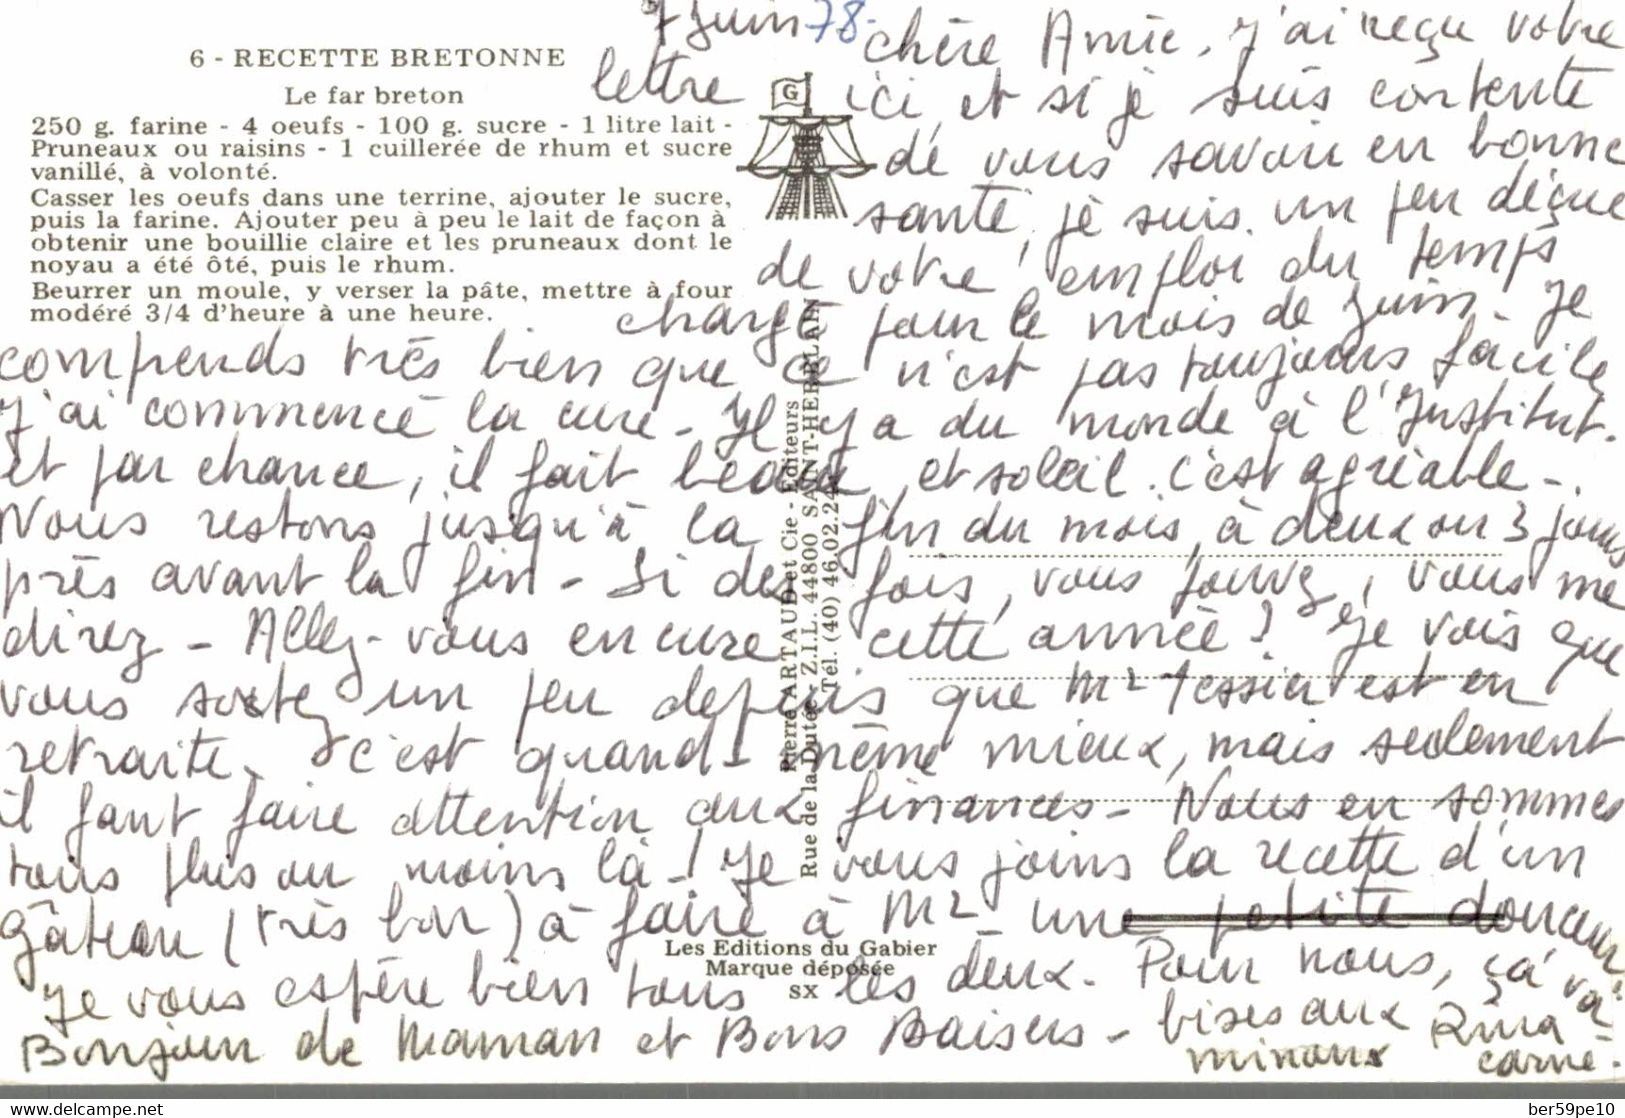 7 Juin 78 -
6 - RECETTE BRETONNE
Le far breton
250 g. farine - 4 oeufs - 100 g. sucre - 1 litre lait -
Pruneaux ou raisins - 1 cuillerée de rhum et sucre
vanillé, à volonté.
Casser les oeufs dans une terrine, ajouter le sucre,
puis la farine. Ajouter peu à peu le lait de façon à
obtenir une bouillie claire et les pruneaux dont le
noyau a été ôté, puis le rhum.
Beurrer un moule, y verser la pâte, mettre à four
modéré 3/4 d'heure à une heure.
G
Pierre ARTAUD et Cie - Editeurs
Rue de la Dutée Z.I.L. 44800 SAINT-HERBLAIN
Tél. (40) 46.02.24
Les Editions du Gabier
Marque déposée
SX
chère Amie, j'ai reçu votre
lettre ici et si je suis contente
de vous savoir en bonne
santé, je suis un peu déçue
de votre emploi du temps
chargé pour le mois de Juin. Je
comprends très bien que ce n'est pas toujours facile
J'ai commencé la cure - Il y a du monde à l'Institut.
et par chance, il fait beau et soleil. c'est agréable -.
Nous restons jusqu'à la fin du mois, à deux ou 3 jours
près avant la fin - Si des fois, vous pouvez, vous me
direz - Allez-vous en cure cette année ? Je vois que
vous sortez un peu depuis que Mr Tessier est en
retraite, c'est quand même mieux, mais seulement
il faut faire attention aux finances - Nous en sommes
tous plus ou moins là - ! Je vous joins la recette d'un
gâteau (très bon) à faire à Mr une petite douceur
Je vous espère bien tous les deux. Pour nous, ça va
Bonjour de Maman et Bons Baisers - bises aux
minous
carné.
delcampe.net
ber59pe10